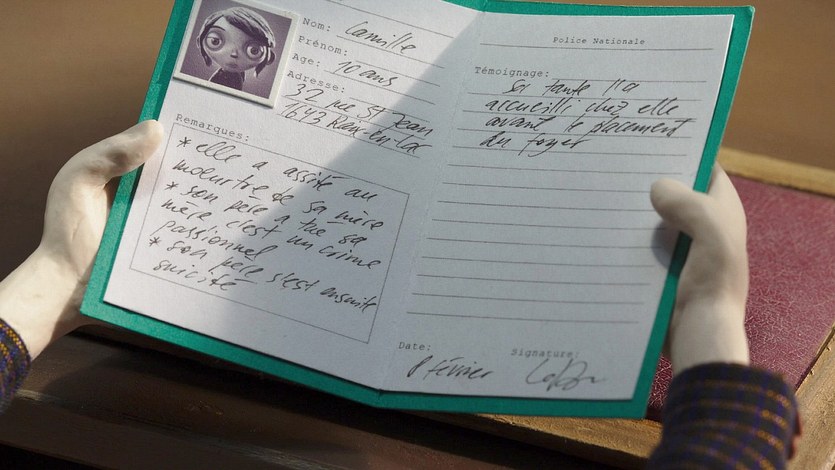 Nom: Camille
Prénom:
Age: 10 ans
Adresse:
32 rue St Jean
1643 Raux-en-Lac
Remarques:
* elle a assité au
meurtre de sa mère
* son père a tué sa
mère c'est un crime
passionnel
* son père s'est ensuite
suicité
Police Nationale
Témoignage:
sa tante l'a
accueilli chez elle
avant le placement
du foyer
Date:
8 février
Signature: